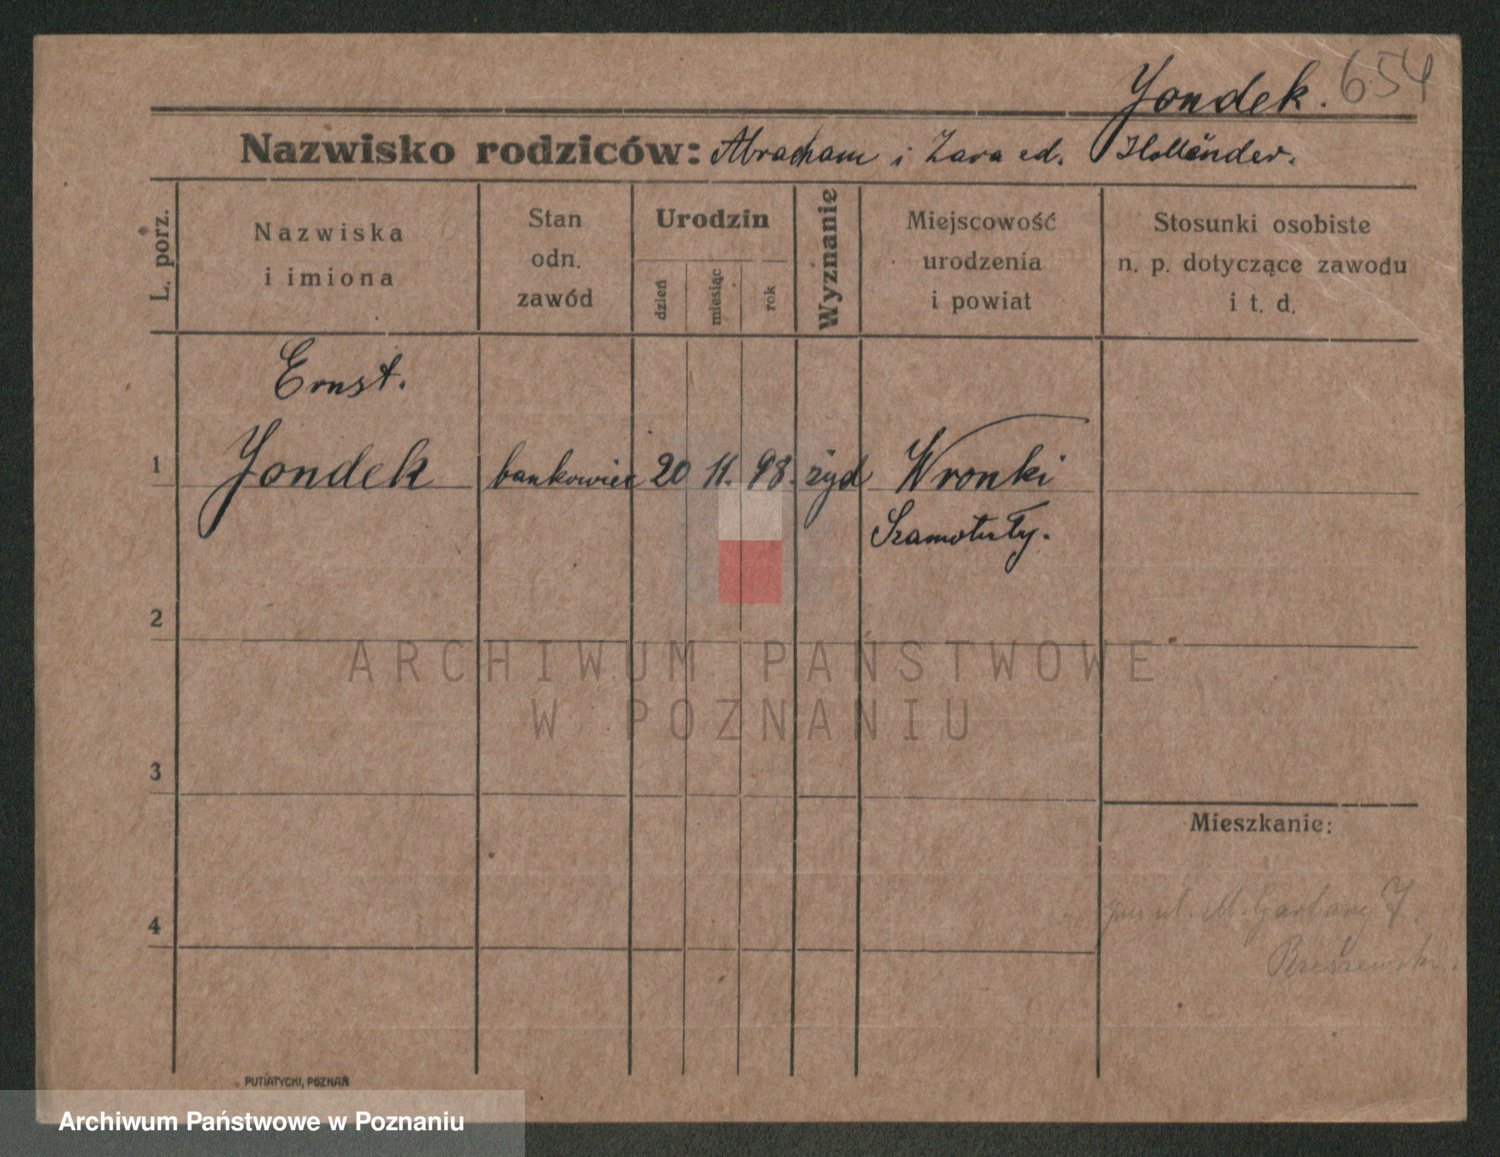 Yondek. 654
Nazwisko rodziców: Abracham i Zara ed. Holländer.
L. porz.
Nazwiska
i imiona
Stan
odn.
zawód
Urodzin
dzień
miesiąc
rok
Wyznanie
Miejscowość
urodzenia
i powiat
Stosunki osobiste
n. p. dotyczące zawodu
i t. d.
Ernst.
1 Yondek bankowiec 20 11. 98. żyd Wronki
Szamotuły.
2
ARCHIWUM PAŃSTWOWE
W POZNANIU
3
Mieszkanie:
4
ul. M. Garbary 7.
PUTIATYCKI, POZNAŃ
Archiwum Państwowe w Poznaniu